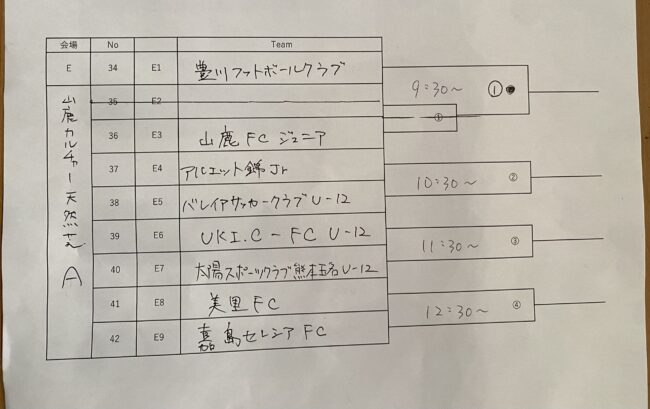 会場 No Team
E 34 E1 豊川フットボールクラブ
9:30〜 ①
35 E2
①
36 E3 山鹿FCジュニア
37 E4 アルエット鏡Jr
10:30〜 ②
38 E5 バレイアサッカークラブU-12
39 E6 UKI.C-FC U-12
11:30〜 ③
40 E7 太陽スポーツクラブ熊本玉名U-12
41 E8 美里FC
12:30〜 ④
42 E9 嘉島セレシアFC
山鹿カルチャー天然芝A